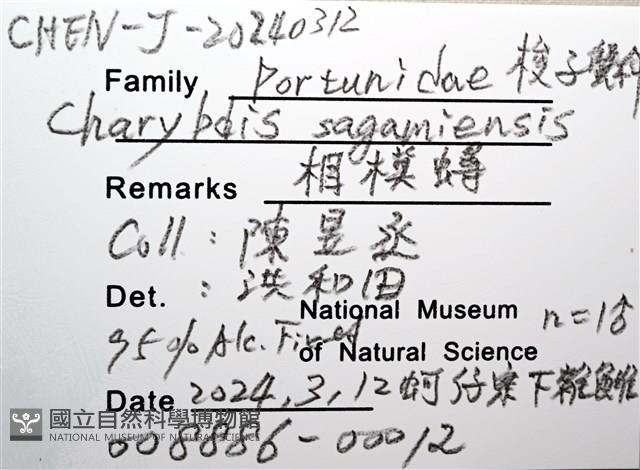 CHEN-J-20240312
Family Portunidae 梭子蟹科
Charybdis sagamiensis
Remarks 相模蟳
Coll : 陳昱丞
Det. : 洪和田
National Museum n=1♂
95% Alc. Fixed of Natural Science
Date 2024,3,12 蚵仔寮下雜魚
國立自然科學博物館
NATIONAL MUSEUM OF NATURAL SCIENCE
008886-00012